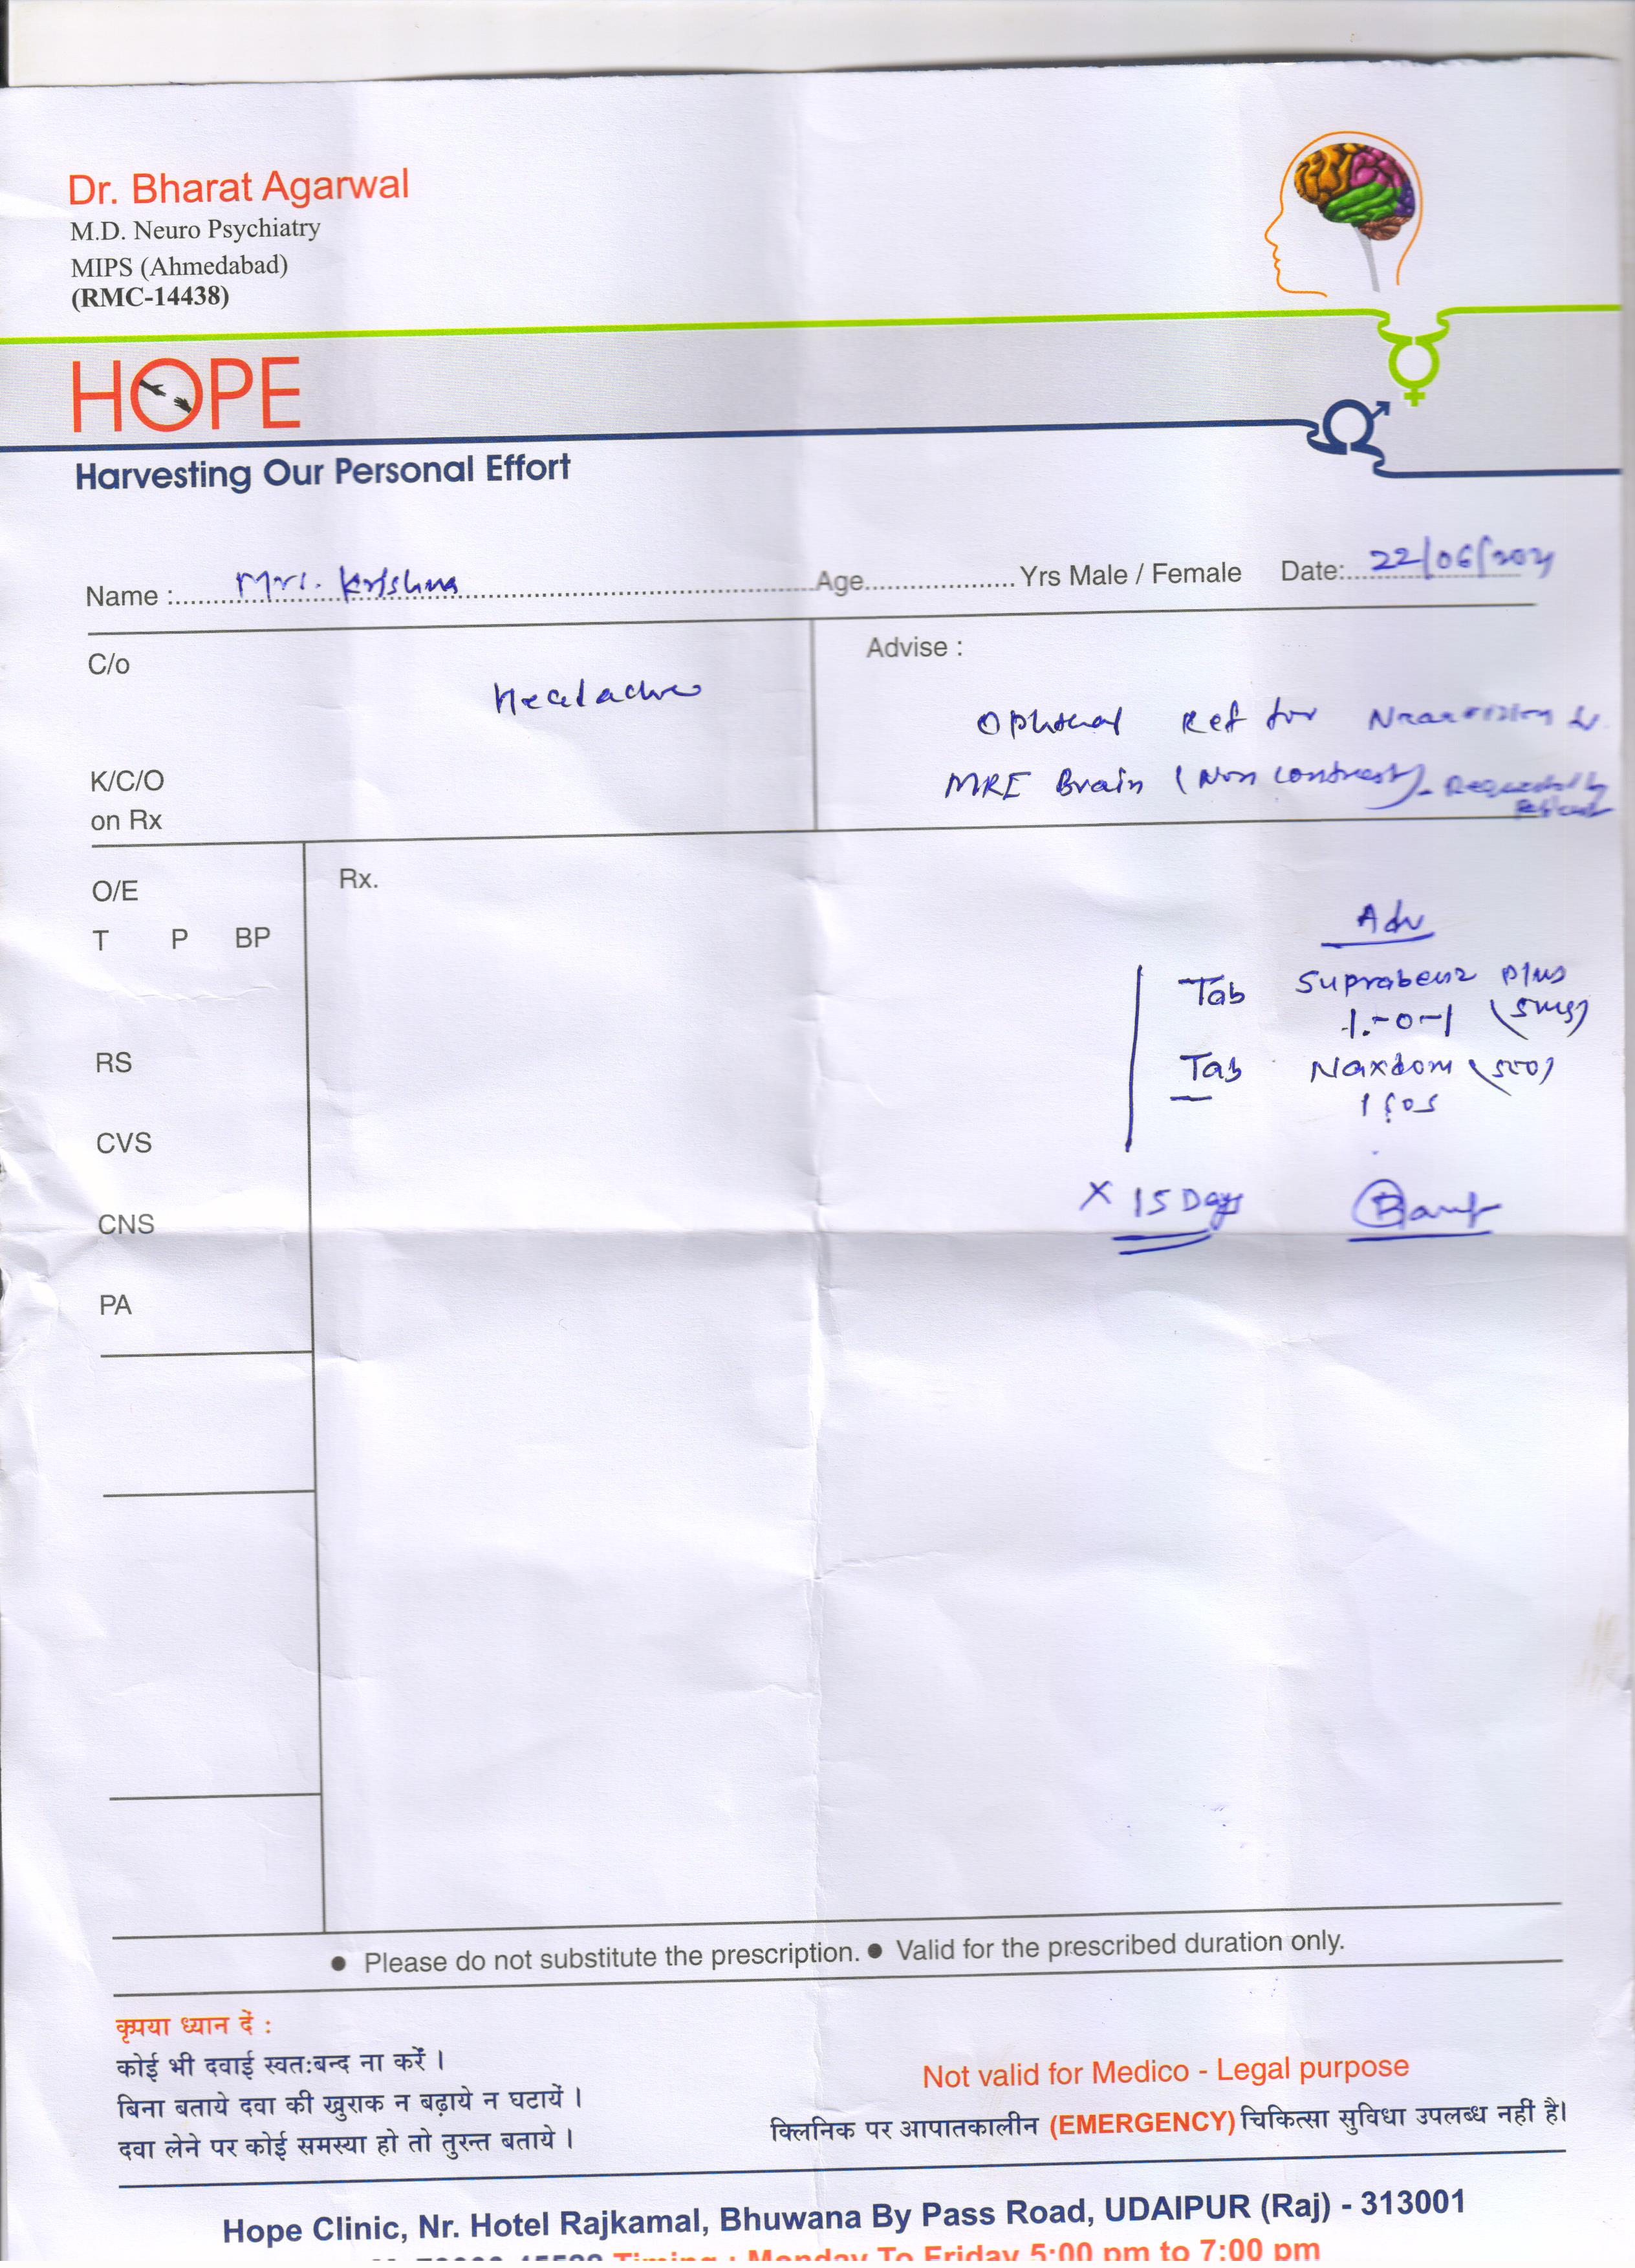 Dr. Bharat Agarwal
M.D. Neuro Psychiatry
MIPS (Ahmedabad)
(RMC-14438)
HOPE
Harvesting Our Personal Effort
Name : Mrs. Krishna Age Yrs Male / Female Date: 22/06/2021
C/o
Headache
Advise :
Ref for
MRI Brain (Non contrast) - Requested by
Patient
K/C/O
on Rx
O/E
T P BP
RS
CVS
CNS
PA
Rx.
Adv
Tab Suprabenz Plus
1-0-1 (5mg)
Tab Naxdom (500)
1 SOS
X 15 Days
● Please do not substitute the prescription. ● Valid for the prescribed duration only.
कृपया ध्यान दें :
कोई भी दवाई स्वतःबन्द ना करें ।
बिना बताये दवा की खुराक न बढ़ाये न घटायें ।
दवा लेने पर कोई समस्या हो तो तुरन्त बताये ।
Not valid for Medico - Legal purpose
क्लिनिक पर आपातकालीन (EMERGENCY) चिकित्सा सुविधा उपलब्ध नहीं है।
Hope Clinic, Nr. Hotel Rajkamal, Bhuwana By Pass Road, UDAIPUR (Raj) - 313001
Timing : Monday To Friday 5:00 pm to 7:00 pm